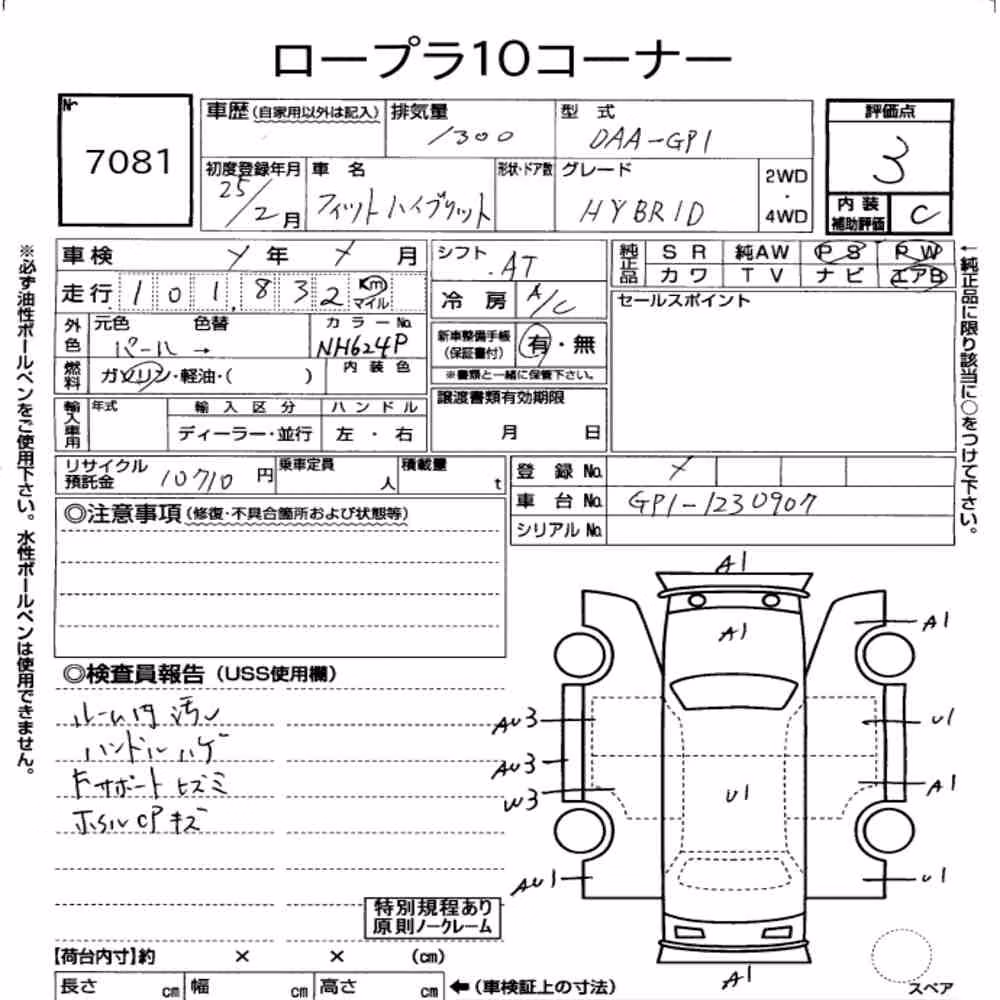 ロープラ10コーナー
№ 7081
車歴 (自家用以外は記入)
排気量 1300
型式 DAA-GP1
評価点 3
初度登録年月 25/2月
車名 フィットハイブリット
形状・ドア数
グレード HYBRID
2WD・4WD
内装補助評価 C
車検 メ年 メ月
シフト AT
純正品 SR 純AW PS PW
カワ TV ナビ エアB
走行 101,832 Km マイル
冷房 A/C
セールスポイント
外色 元色 パール → 色替
カラーNo. NH624P
新車整備手帳(保証書付) 有・無
※書類と一緒に保管下さい。
燃料 ガソリン・軽油・( )
内装色
譲渡書類有効期限
月 日
輸入車用 年式 輸入区分 ハンドル
ディーラー・並行 左・右
リサイクル預託金 10710円
乗車定員 人
積載量 t
登録No. メ
車台No. GP1-1230907
シリアルNo.
◎注意事項 (修復・不具合箇所および状態等)
◎検査員報告 (USS使用欄)
ルーム内汚レ
ハンドルハゲ
Fサポートヒズミ
ホsルCPキズ
特別規程あり
原則ノークレーム
【荷台内寸】約 × × (cm)
長さ cm 幅 cm 高さ cm ←(車検証上の寸法)
※必ず油性ボールペンをご使用下さい。水性ボールペンは使用できません。
←純正品に限り該当に○をつけて下さい。
A1
A1
A1
AU3
U1
AU3
A1
W3
U1
AU1
U1
A1
スペア